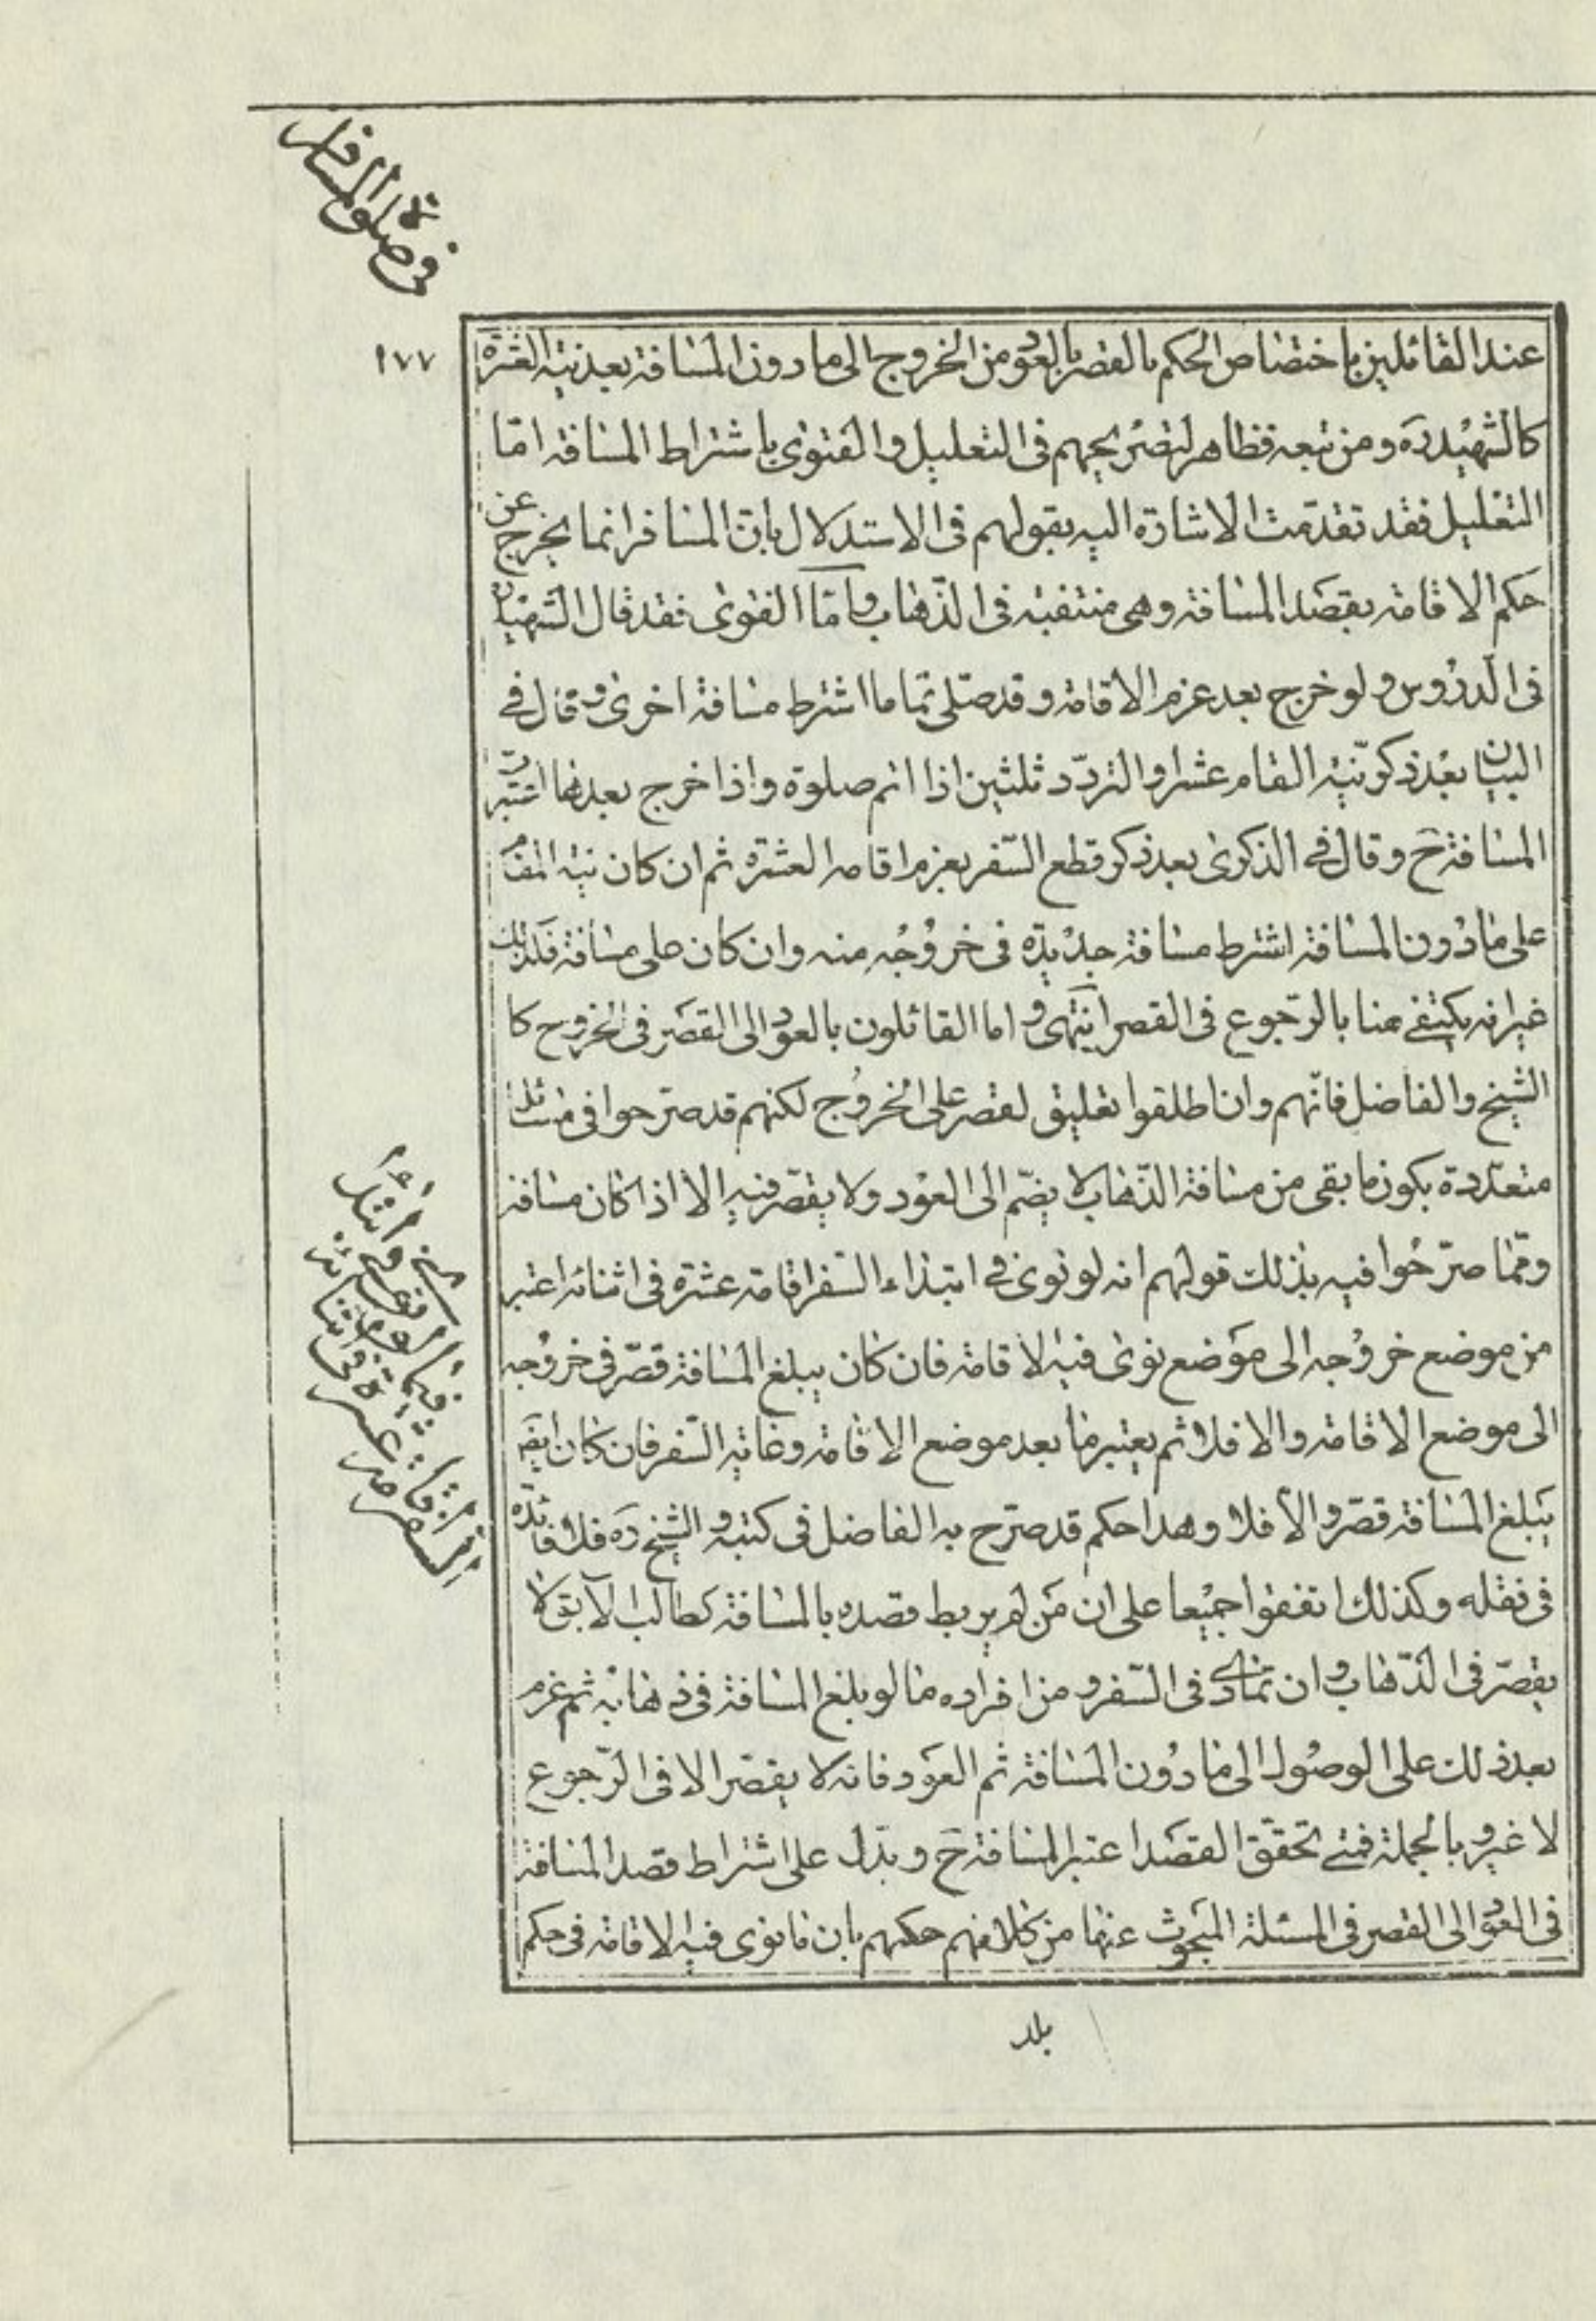 في صلوة المسافر
١٧٧
عند القائلين باختصاص الحكم بالقصر بالعود من الخروج الى ما دون المسافة بعد نية العشرة
كالشهيد ره ومن تبعه فظاهر لتصريحهم في التعليل والفتوى باشتراط المسافة امّا
التعليل فقد تقدمت الاشارة اليه بقولهم في الاستدلال بان المسافر انما يخرج عن
حكم الاقامة بقصد المسافة وهي منتفية في الذهاب وامّا الفتوى فقد قال الشهيد
في الدروس ولو خرج بعد عزم الاقامة وقد صلى تماما اشترط مسافة اخرى وقال في
البيان بعد ذكر نية المقام عشرا والتردّد ثلثين اذا اتم صلوة واذا خرج بعدها اعتبرت
المسافة ح وقال في الذكرى بعد ذكر قطع السّفر بعزم اقامة العشرة ثم ان كان نية المقام
على ما دون المسافة اشترط مسافة جديدة في خروجه منه وان كان على مسافة فكذلك
غير انه يكتفي هنا بالرّجوع في القصر انتهى واما القائلون بالعود الى القصر في الخروج كا
الشيخ والفاضل فانّهم وان اطلقوا تعليق لقصر على الخروج لكنهم قد صرّحوا في مسائل
متعدّدة بكون ما بقى من مسافة الذّهاب لا يضمّ الى العود ولا يقصّر فيه الا اذا كان مسافة
وممّا صرّحوا فيه بذلك قولهم انه لو نوى في ابتداء السّفر اقامة عشرة في اثنائه اعتبر
من موضع خروجه الى موضع نوى فيه الاقامة فان كان يبلغ المسافة قصّر في خروجه
الى موضع الاقامة والا فلا ثم يعتبر ما بعد موضع الاقامة وغاية السّفر فان كان ايضا
يبلغ المسافة قصّر والا فلا وهذا حكم قد صرّح به الفاضل في كتبه والشيخ ره فلا فائدة
في نقله وكذلك اتفقوا جميعا على ان من لم يربط قصده بالمسافة كطالب الآبق لا
يقصّر في الذّهاب وان تمادى في السّفر ومن افراده ما لو بلغ المسافة في ذهابه ثم عزم
بعد ذلك على الوصول الى ما دون المسافة ثم العود فانه لا يقصّر الا في الرّجوع
لا غير وبالجملة فمتى تحقق القصد اعتبر المسافة ح ويدل على اشتراط قصد المسافة
في العود الى القصر في المسئلة المبحوث عنها من كلامهم حكمهم بان ما نوى فيه الاقامة في حكم
بلد